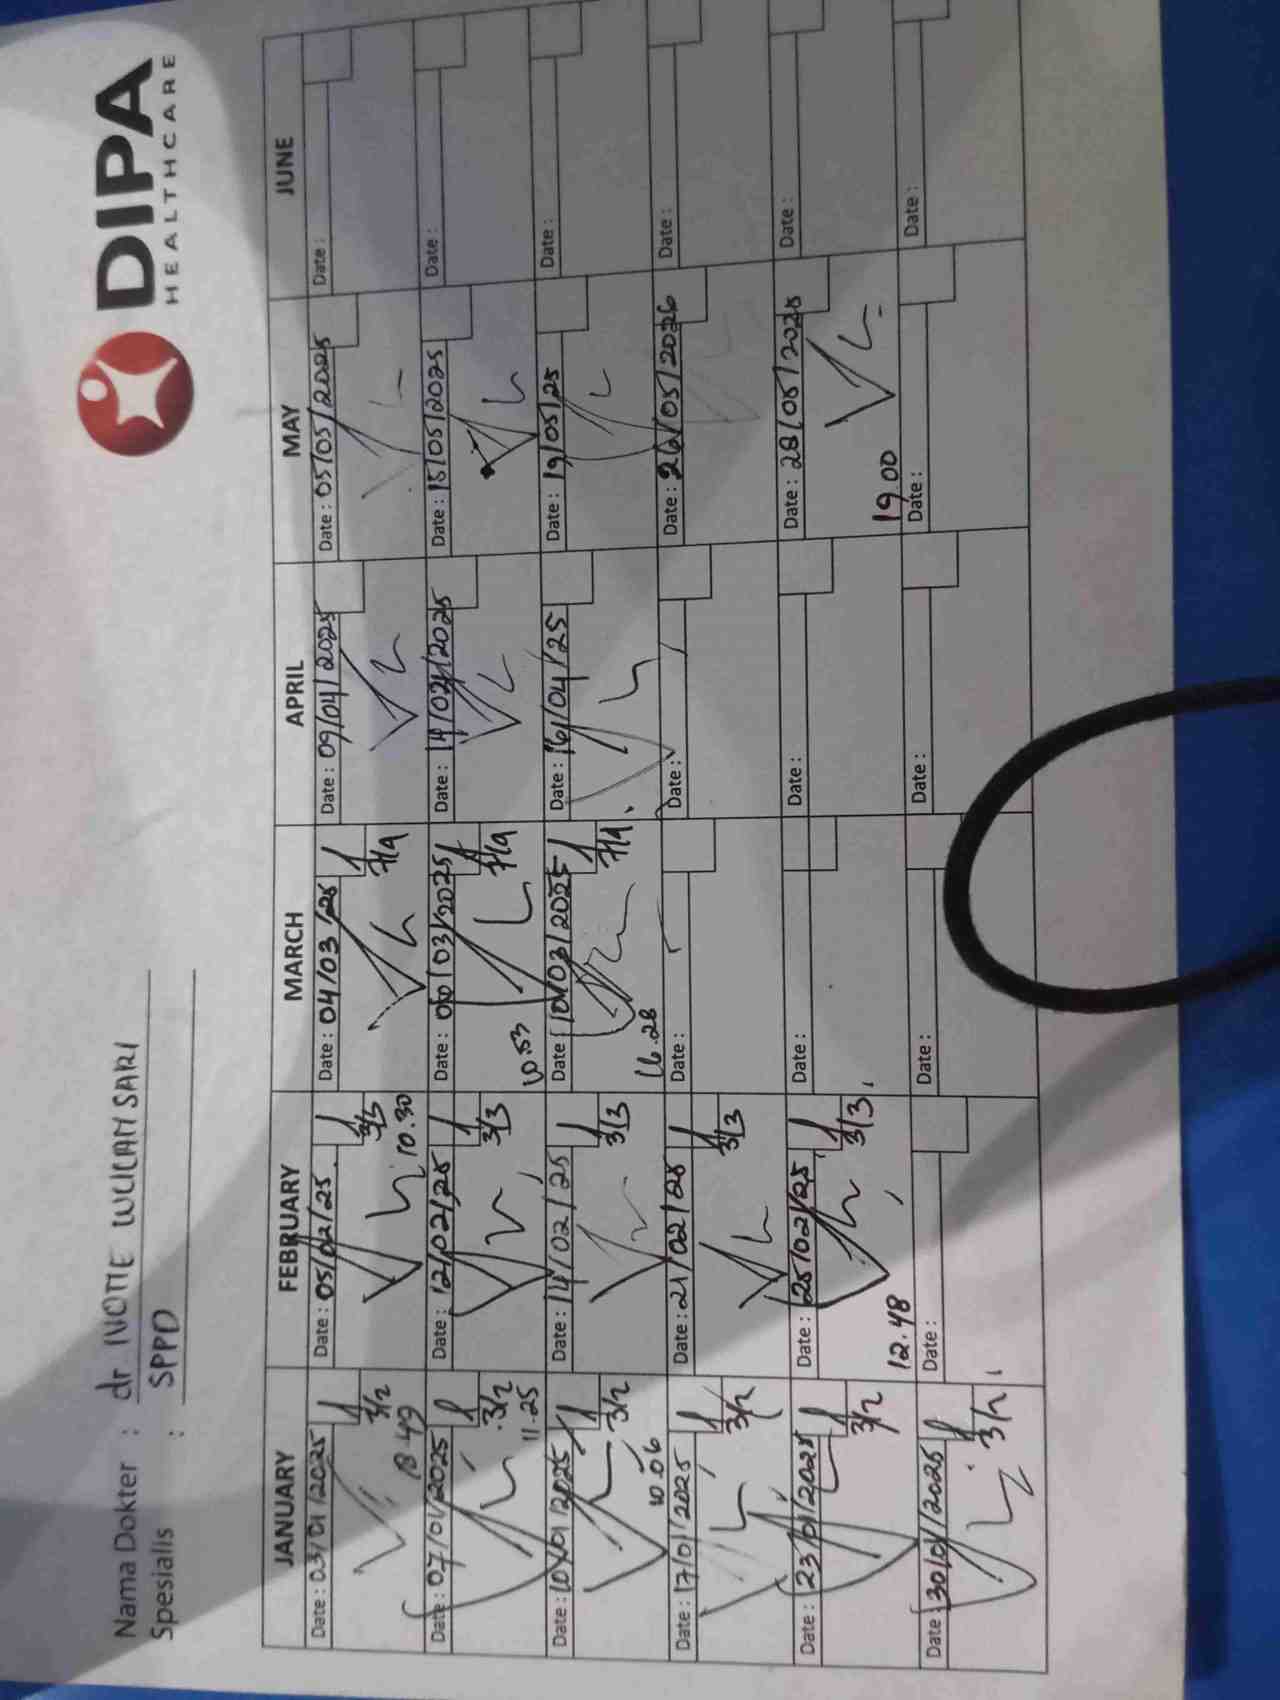 DIPA
HEALTHCARE
Nama Dokter : dr IVOTTE WULANSARI
Spesialis : SPPD
JANUARY FEBRUARY MARCH APRIL MAY JUNE
Date : 03/01/2025 Date : 05/02/25 Date : 04/03/25 Date : 09/04/2025 Date : 05/05/2025 Date :
3/2 3/3 7/4
18 49 10.30
Date : 07/01/2025 Date : 12/02/25 Date : 06/03/2025 Date : 14/04/2025 Date : 15/05/2025 Date :
3/2 3/3 7/4
11.25 10.53
Date : 10/01/2025 Date : 14/02/25 Date : 10/03/2025 Date : 16/04/25 Date : 19/05/25 Date :
3/2 3/3 7/4
10.06 16.28
Date : 17/01/2025 Date : 21/02/25 Date : Date : Date : 26/05/2026 Date :
3/2 3/3
Date : 23/01/2025 Date : 25/02/25 Date : Date : Date : 28/05/2025 Date :
3/2 3/3
12.48 19.00
Date : 30/01/2025 Date : Date : Date : Date : Date :
3/2